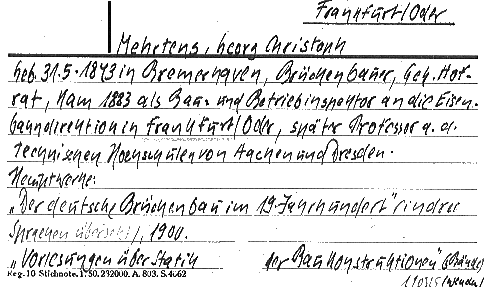 Frankfurt/Oder
Mehrtens, Georg Christoph
geb. 31.5.1843 in Bremerhaven, Brückenbauer, Geh. Hof-
rat, kam 1883 als Bau- und Betriebinspektor an die Eisen-
bahndirektion in Frankfurt/Oder, später Professor a. d.
Technischen Hochschulen von Aachen und Dresden.
Hauptwerke:
„Der deutsche Brückenbau im 19. Jahrhundert" (in drei
Sprachen übersetzt), 1900.
„Vorlesungen über Statik der Baukonstruktionen" (
Reg. 10 Stichnote. 1750. 232000. A. 803. S. 4662